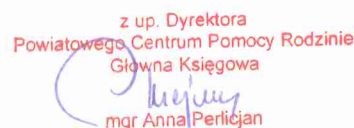 z up. Dyrektora
Powiatowego Centrum Pomocy Rodzinie
Główna Księgowa
mgr Anna Perlicjan